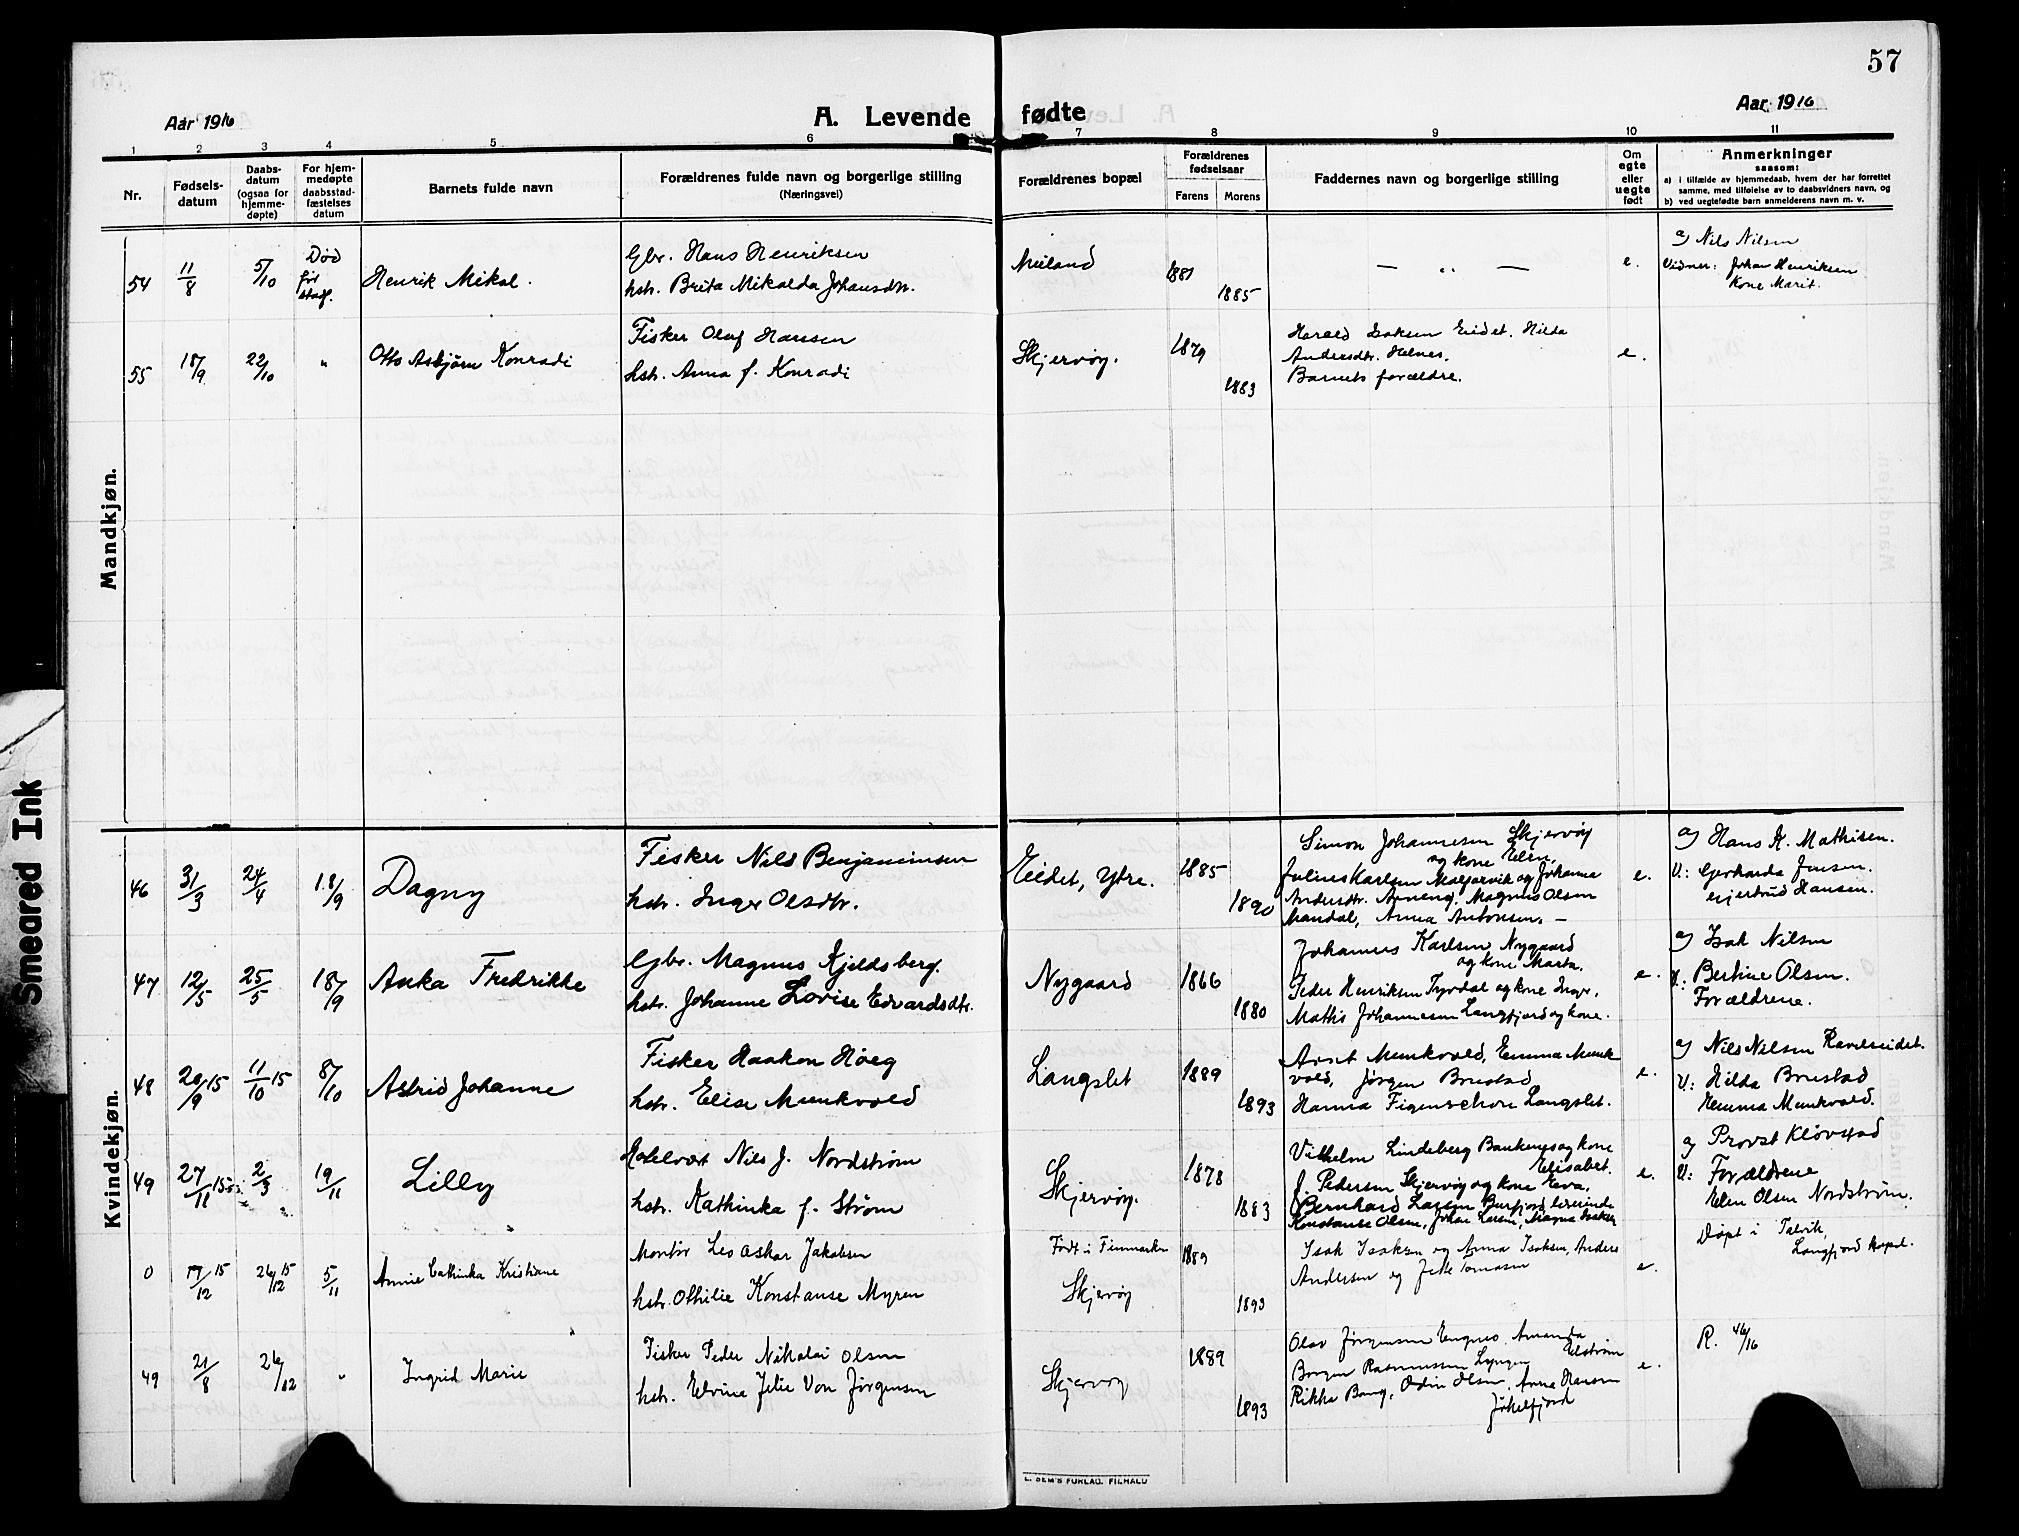 57
Aar 1916
A. Levende fødte
Aar 1916
1 2 3 4 5 6 7 8 9 10 11
Nr.
Fødsels-
datum
Daabs-
datum
(ogsaa for
hjemme-
døpte)
For hjem-
medøpte
daabsstad-
fæstelses
datum
Barnets fulde navn
Forældrenes fulde navn og borgerlige stilling
(Næringsvei)
Forældrenes bopæl
Forældrenes
fødselsaar
Farens Morens
Faddernes navn og borgerlige stilling
Om
egte
eller
uegte
født
Anmerkninger
saasom:
a) i tilfælde av hjemmedaab, hvem der har forrettet
samme, med tilføielse av to daabsvidners navn, og
b) ved uegtefødte barn anmelderens navn m. v.
Mandkjøn.
54 11/8 5/10 Død før stadf.
Henrik Mikal.
Gbr. Hans Henriksen
hstr. Brita Mikalda Johansdtr.
Meiland
1881
1885
— „ —
e.
a) Nils Nilsen
Vidner: Johan Henriksen
kone Marit.
55 18/9 22/10 "
Otto Asbjørn Konradi
Fisker Oluf Hansen
hstr. Anna f. Konradi
Skjervøy.
1879
1883
Harald Isaksen Eidet, Hilda
Andersdtr. Helnes.
Barnets forældre.
e.
Kvindekjøn.
46 31/3 24/4 18/9
Dagny
Fisker Nils Benjaminsen
hstr. Inger Olsdtr.
Eidet, Ytre.
1885
1890
Simon Johannesen Skjervøy
og kone Elen.
Julius Karlsen og Johanna
Andersdtr. Magnus Olsen
Mandal, Anna Antonsen. —
e.
a) Hans K. Mathisen.
V.: Gerharda Jensen.
Gjertrud Hansen.
47 12/5 25/5 18/9
Anka Fredrikke
Gbr. Magnus Kjeldsberg.
hstr. Johanne Lovise Edvardsdtr.
Nygaard
1866
1880
Johannes Karlsen Nygaard
og kone Marta.
Peder Henriksen og kone Inger.
Mathis Johannesen Langfjord og kone.
e.
a) Isak Nilsen
V.: Bertine Olsen.
Forældrene.
48 20/9 15 11/10 15 8/10
Astrid Johanne
Fisker Haakon Høeg
hstr. Elise Munkvold
Langslet
1889
1893
Munkvold, Emma Munk
vold, Jørgen Brustad
Hanna Figenschou Langslet.
e.
a) Nils Nilsen Ravelseidet.
V: Hilda Brustad
Hemma Munkvold.
49 27/11 15 2/3 19/11
Lilly
Hotelvert Nils J. Nordstrøm
hstr. Kathinka f. Strøm
Skjervøy.
1878
1883
Vilhelm Lindeberg og kone
Elisabet.
J. Pedersen Skjervøy og kone Eva.
Bernhard Larsen Burfjord, lærerinde
Konstanse Olsen, Johan Larsen, Magna Isaksen
e.
a) Provst Kløvstad
V: Forældrene
Elen Olsen Nordstrøm.
0 17/12 15 26/12 15 5/11
Annie Cathinka Kristiane
Montør Leo Oskar Jakobsen
hstr. Othilie Konstanse Myren
Født i Finmarken
Skjervøy
1889
1893
Isak Isaksen og Anna Isaksen, Anders
Andersen og
e.
Døpt i Talvik,
Langfjord kapel.
49 21/8 26/12 "
Ingrid Marie
Fisker Peder Nikolai Olsen
hstr. Elvine Jelie Von Jørgensen
Skjervøy
1889
1893
Olav Jørgensen Engnes, Amanda
Elstrøm
Borgen Rasmussen Lyngen
Rikka Bang, Odin Olsen, Anna Hansen
Jøkelfjord
e.
R. 46/16
E. SEM'S FORLAG. FILHALD
Smeared Ink